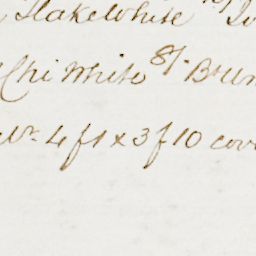 Flake White
Chi White 8/. B Um
Ur. 4 ft x 3 f 10 cov